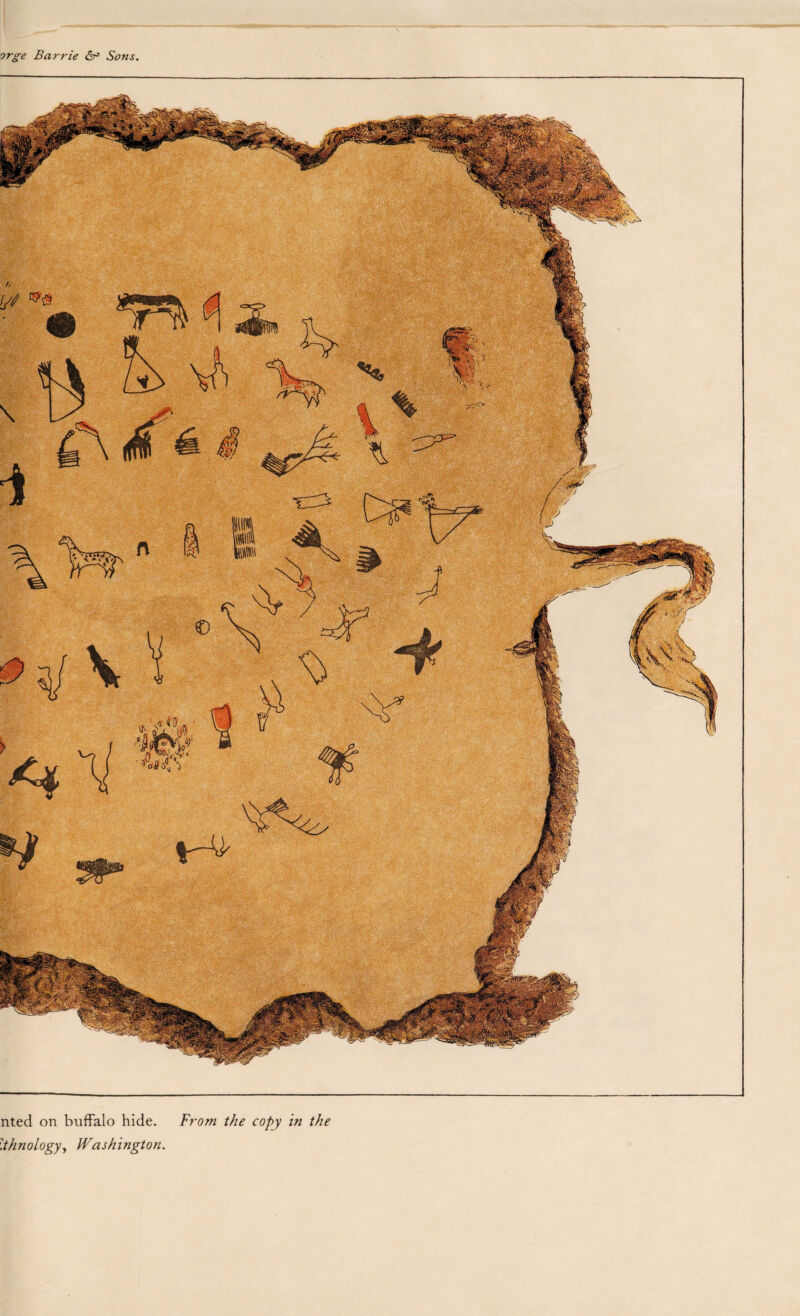 orge Barrie & Sons.
nted on buffalo hide. From the copy in the
thnology, Washington.